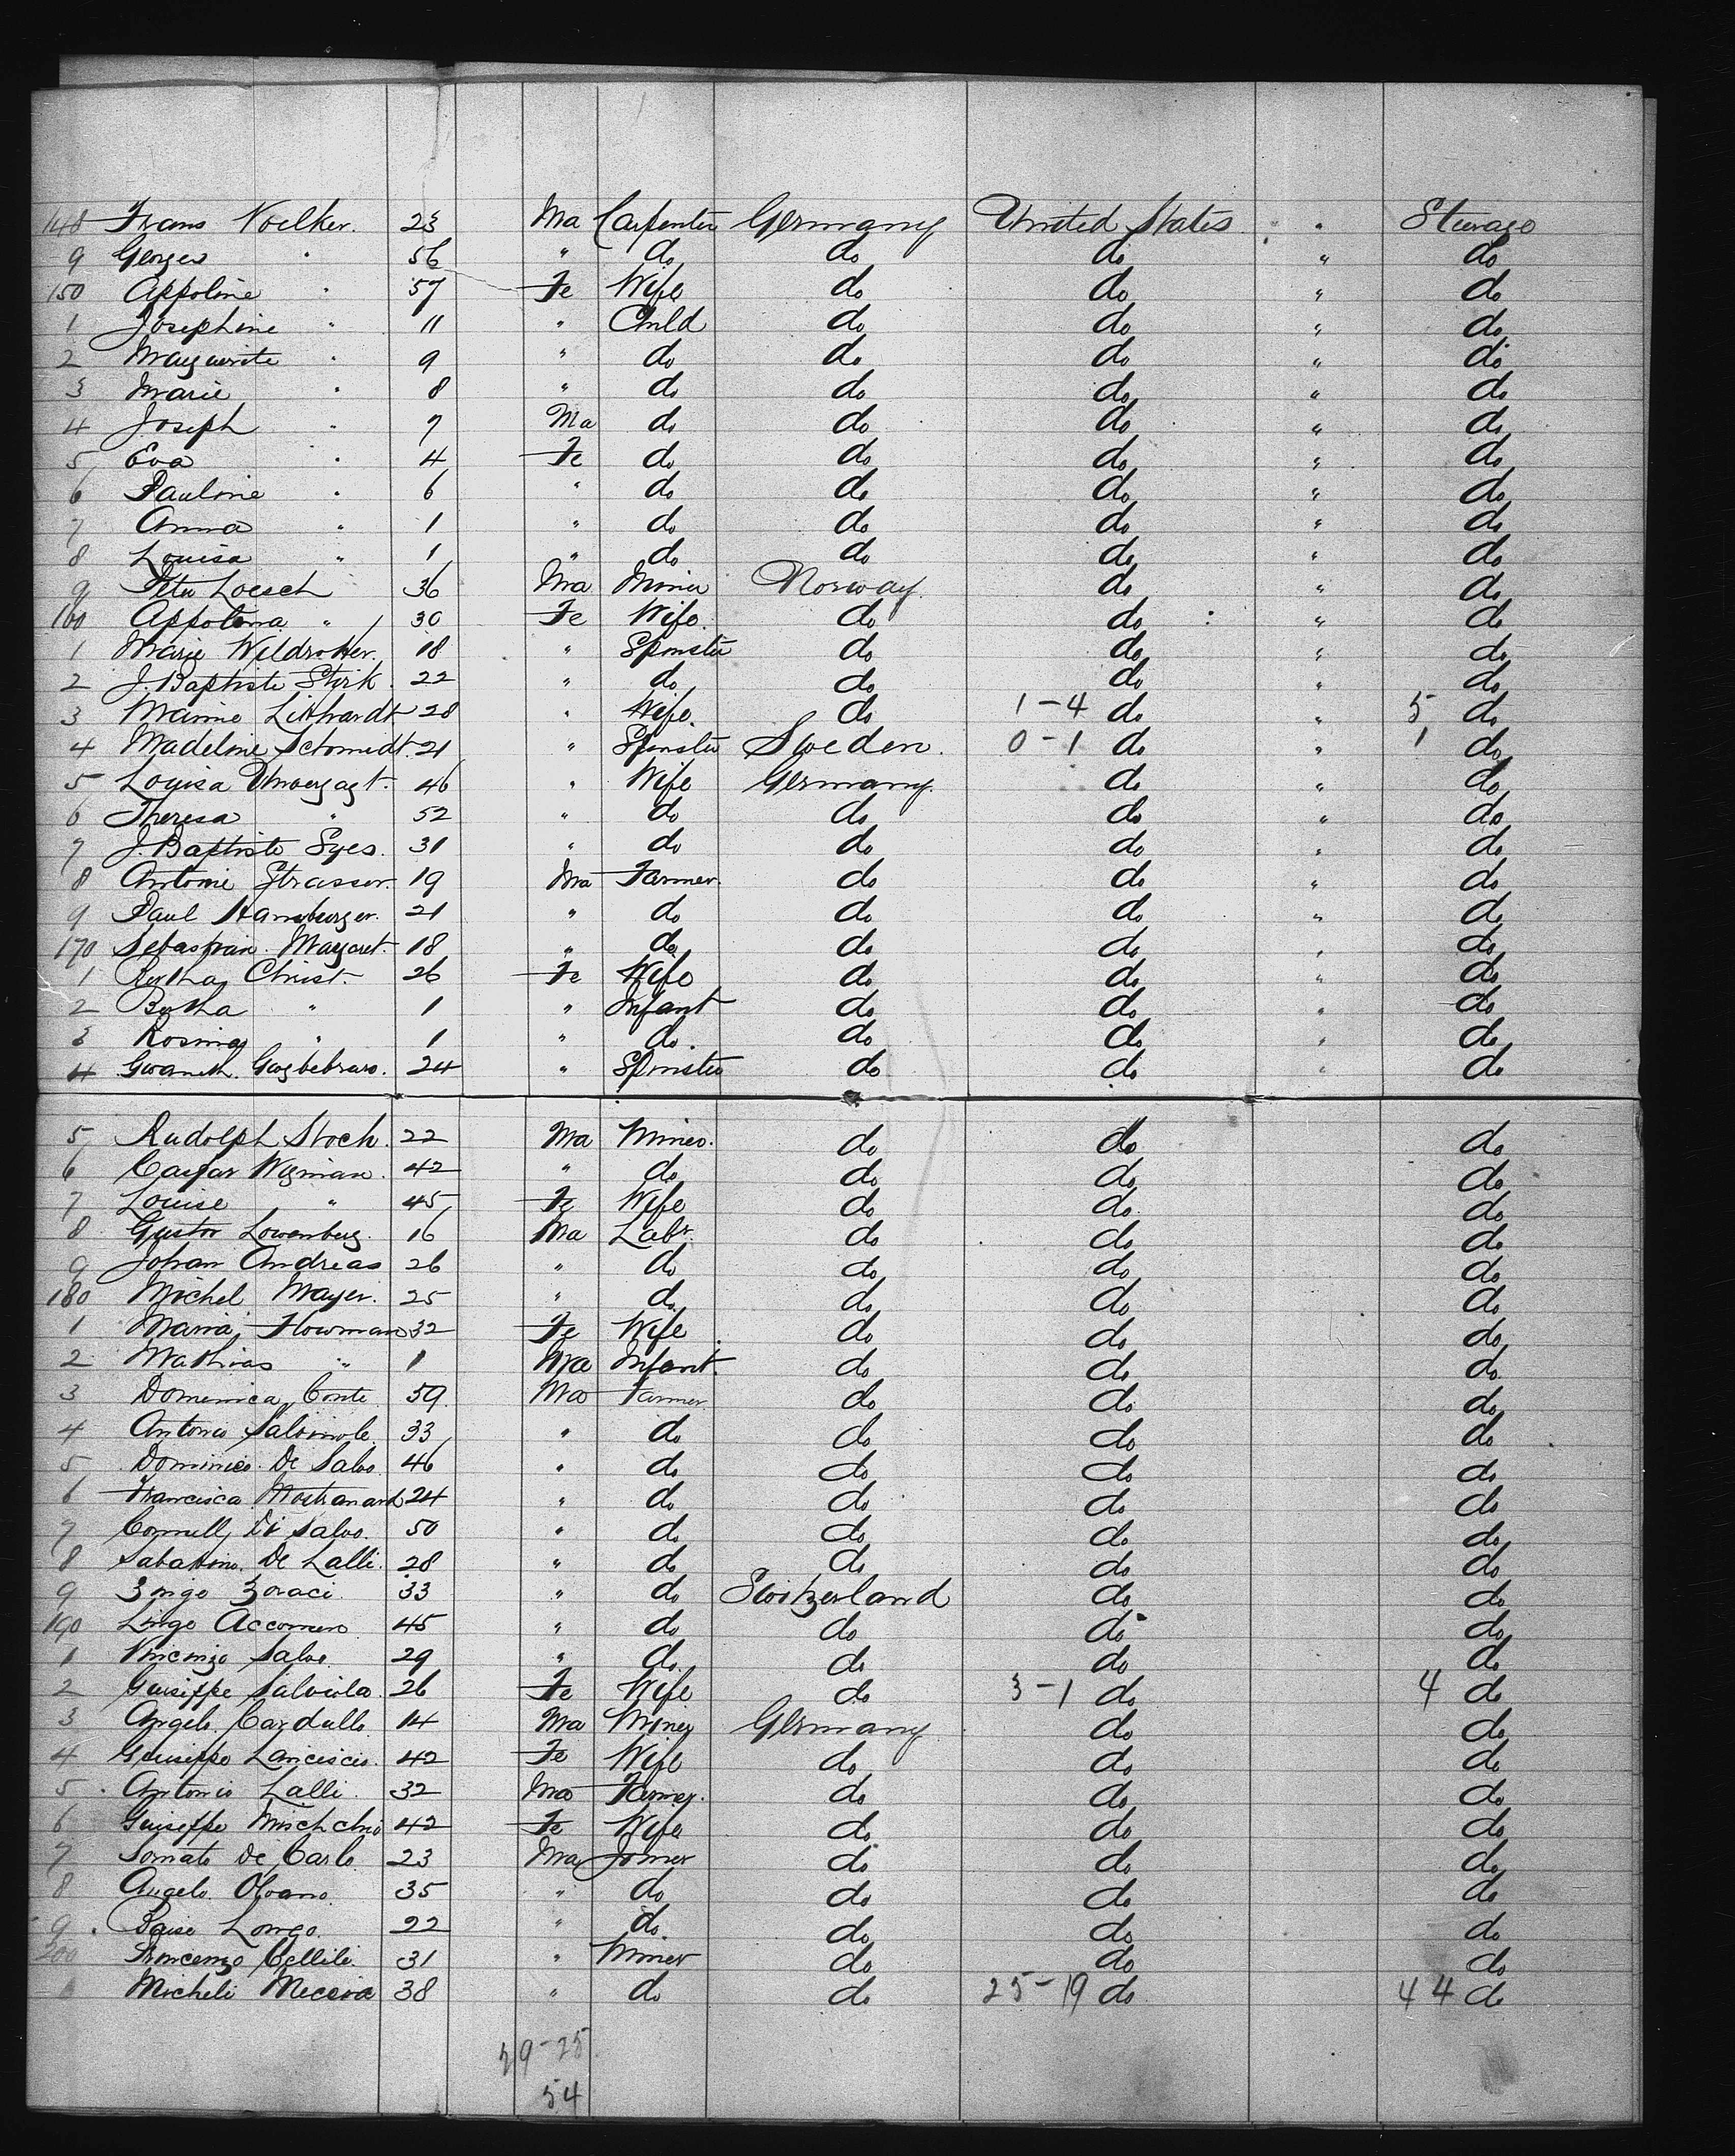 148 Frans Voelker. 23 Ma Carpenter Germany United States " Steerage
9 Georges " 56 " do do do " do
150 Appoline " 57 Fe Wife do do " do
1 Josephine " 11 " Child do do " do
2 Marguerite " 9 " do do do " do
3 Marie " 8 " do do do " do
4 Joseph " 7 Ma do do do " do
5 Eva " 4 Fe do do do " do
6 Pauline " 6 " do do do " do
7 Anna " 1 " do do do " do
8 Louisa " 1 " do do do " do
9 Peter Loesch 36 Ma Miner Norway. do " do
160 Appolona " 30 Fe Wife. do do " do
1 Marie 18 " Spinster do do " do
2 J. Baptiste Stirk. 22 " do do do " do
3 28 " Wife. do 1-4 do " 5 do
4 Madeline Schmidt. 21 " Spinster Sweden. 0-1 do " 1 do
5 Louisa 46 " Wife Germany. do " do
6 Theresa " 52 " do do do " do
7 J. Baptiste Syes. 31 " do do do " do
8 Antoine Strasser. 19 Ma Farmer. do do " do
9 Paul Hamburger. 21 " do do do " do
170 Sebastian 18 " do do do " do
1 Bertha Christ. 26 Fe Wife do do " do
2 Bertha " 1 " Infant do do " do
3 Rosina " 1 " do. do do " do
4 24 " Spinster do do " do
5 Rudolph Stoch. 22 Ma Miner. do do do
6 Caspar Wyman. 42 " do do do do
7 Louise " 45 Fe Wife do do. do
8 Gustov Lowenberg. 16 Ma Labr. do do do
9 Johan Andreas 26 " do do do do
180 Michel Mayer. 25 " do do do do
1 Maria Flowman 32 Fe Wife do do do
2 Mathias " 1 Ma Infant. do do do.
3 Domenica Conte 59. Ma Farmer do do do
4 Antonio 33 " do do do do
5 Dominico De Salvo 46 " do do do do
6 Francisca 24 " do do do do
7 Di Salvo. 50 " do do do do
8 Sabattino. De Lalli. 28 " do do do do
9 33 " do Switzerland do do
190 45 " do do do do
1 Vincenzo Salvo. 29 " do. do do do
2 Guiseppe Salviola. 26 Fe Wife do 3-1 do 4 do
3 Angelo Cardullo 14 Ma Miner Germany do do
4 Guiseppe 42 Fe Wife do do do
5 Antonio Lalli. 32 Ma Farmer. do do do
6 Guiseppe 42 Fe Wife do do do
7 De Carlo 23 Ma Joiner do do do
8 Angelo 35 " do do do do
9 Longo. 22 " do do do do
200 31 " Miner do do do
1 Micheli 38 " do do 25-19 do 44 do
29-25
54